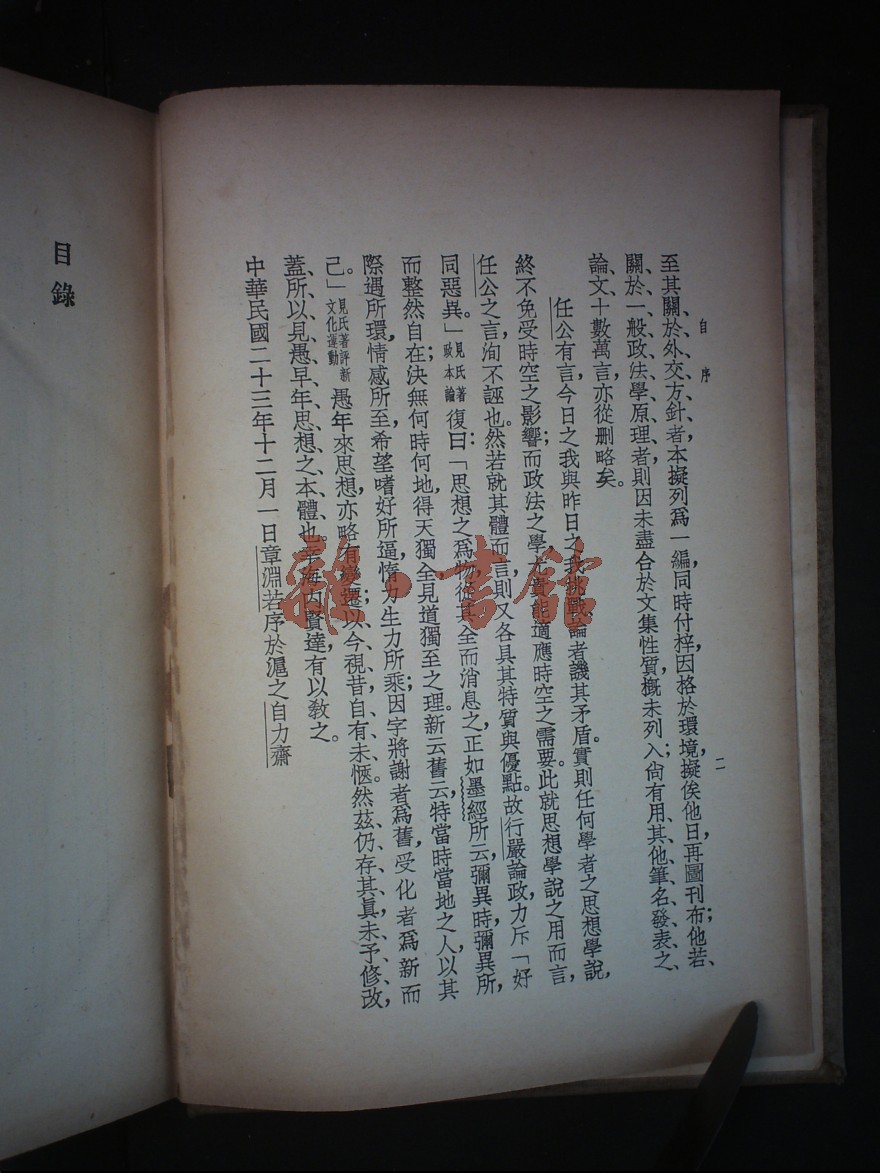 自序
二
至其關於外交方針者,本擬列爲一編,同時付梓,因格於環境,擬俟他日,再圖刊布;他若、
關、於、一、般、政、法、學、原、理、者、則因未盡合於文集性質,槪未列入;尙有用、其、他、筆、名、發、表、之、
論、文、十、數、萬、言、亦從删略矣。
任公有言,今日之我與昨日之我挑戰,論者譏其矛盾。實則任何學者之思想學說,
終不免受時空之影響;而政法之學,尤貴能適應時空之需要。此就思想學說之用而言,
任公之言,洵不誣也。然若就其體而言,則又各具其特質與優點。故行嚴論政,力斥「好
同惡異。」見氏著政本論復曰:「思想之爲物,從其全而消息之,正如墨經所云,彌異時,彌異所,
而整然自在;決無何時何地,得天獨全,見道獨至之理。新云舊云,特當時當地之人,以其
際遇所環,情感所至,希望嗜好所逼,惰力生力所乘,因字將謝者爲舊,受化者爲新而
己。」見氏著評新文化運動愚年來思想,亦略有變遷;以今視昔,自有未愜。然茲仍存其眞,未予修改,
蓋、所、以、見、愚、早、年、思、想、之、本、體、也。幸海內賢達,有以敎之。
中華民國二十三年十二月一日章淵若序於滬之自力齋
目錄
雜·書館